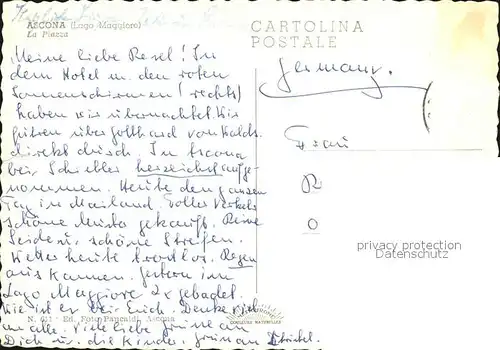 ASCONA (Lago Maggiore)
La Piazza
CARTOLINA
POSTALE
Meine liebe Resel! In
dem Hotel m. den roten
Sonnenschirmen (rechts)
haben wir übernachtet. Wir
über Gotthard von
direkt durch. In Ascona
bei Schiller herzlichst aufge-
nommen. Heute den ganzen
Tag in Mailand. Toller Verkehr
schöne Muster gekauft. Reine
Seide u. schöne Streifen.
Wetter heute trostlos. Regen
aus Kannen. Gestern im
Lago Maggiore 2x gebadet.
Wie ist es bei Euch. Denke viel
an alle. Viele liebe Grüsse an
Dich u. die Kinder. Gruss an
Germany.
Frau
R
O
privacy protection
Datenschutz
Ed. Foto Pancaldi, Ascona